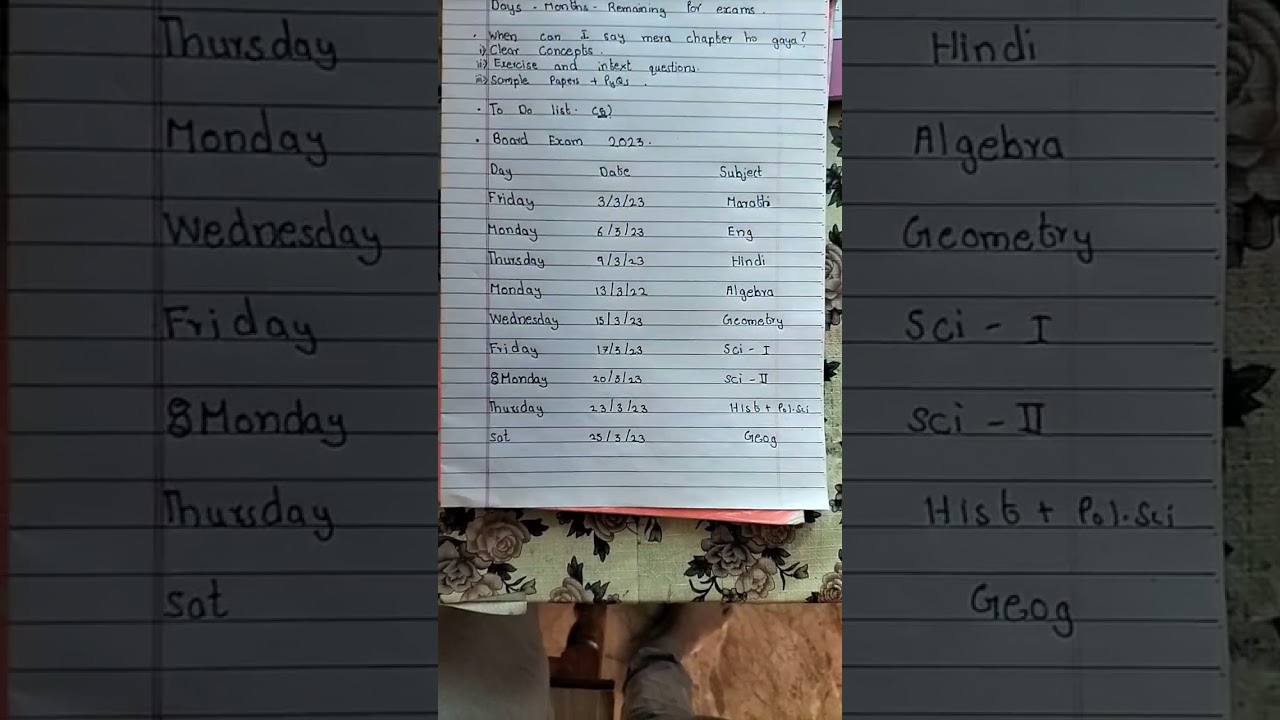 Days - Months - Remaining for exams.
• When can I say mera chapter ho gaya?
i) Clear Concepts.
ii) Exercise and intext questions.
iii) Sample Papers + PyQs.
• To Do list. (8)
• Board Exam 2023.
Day Date Subject
Friday 3/3/23 Marathi
Monday 6/3/23 Eng
Thursday 9/3/23 Hindi
Monday 13/3/22 Algebra
Wednesday 15/3/23 Geometry
Friday 17/3/23 Sci - I
Monday 20/3/23 Sci - II
Thursday 23/3/23 Hist + Pol.Sci
Sat 25/3/23 Geog
Thursday Hindi
Monday Algebra
Wednesday Geometry
Friday Sci - I
Monday Sci - II
Thursday Hist + Pol.Sci
Sat Geog